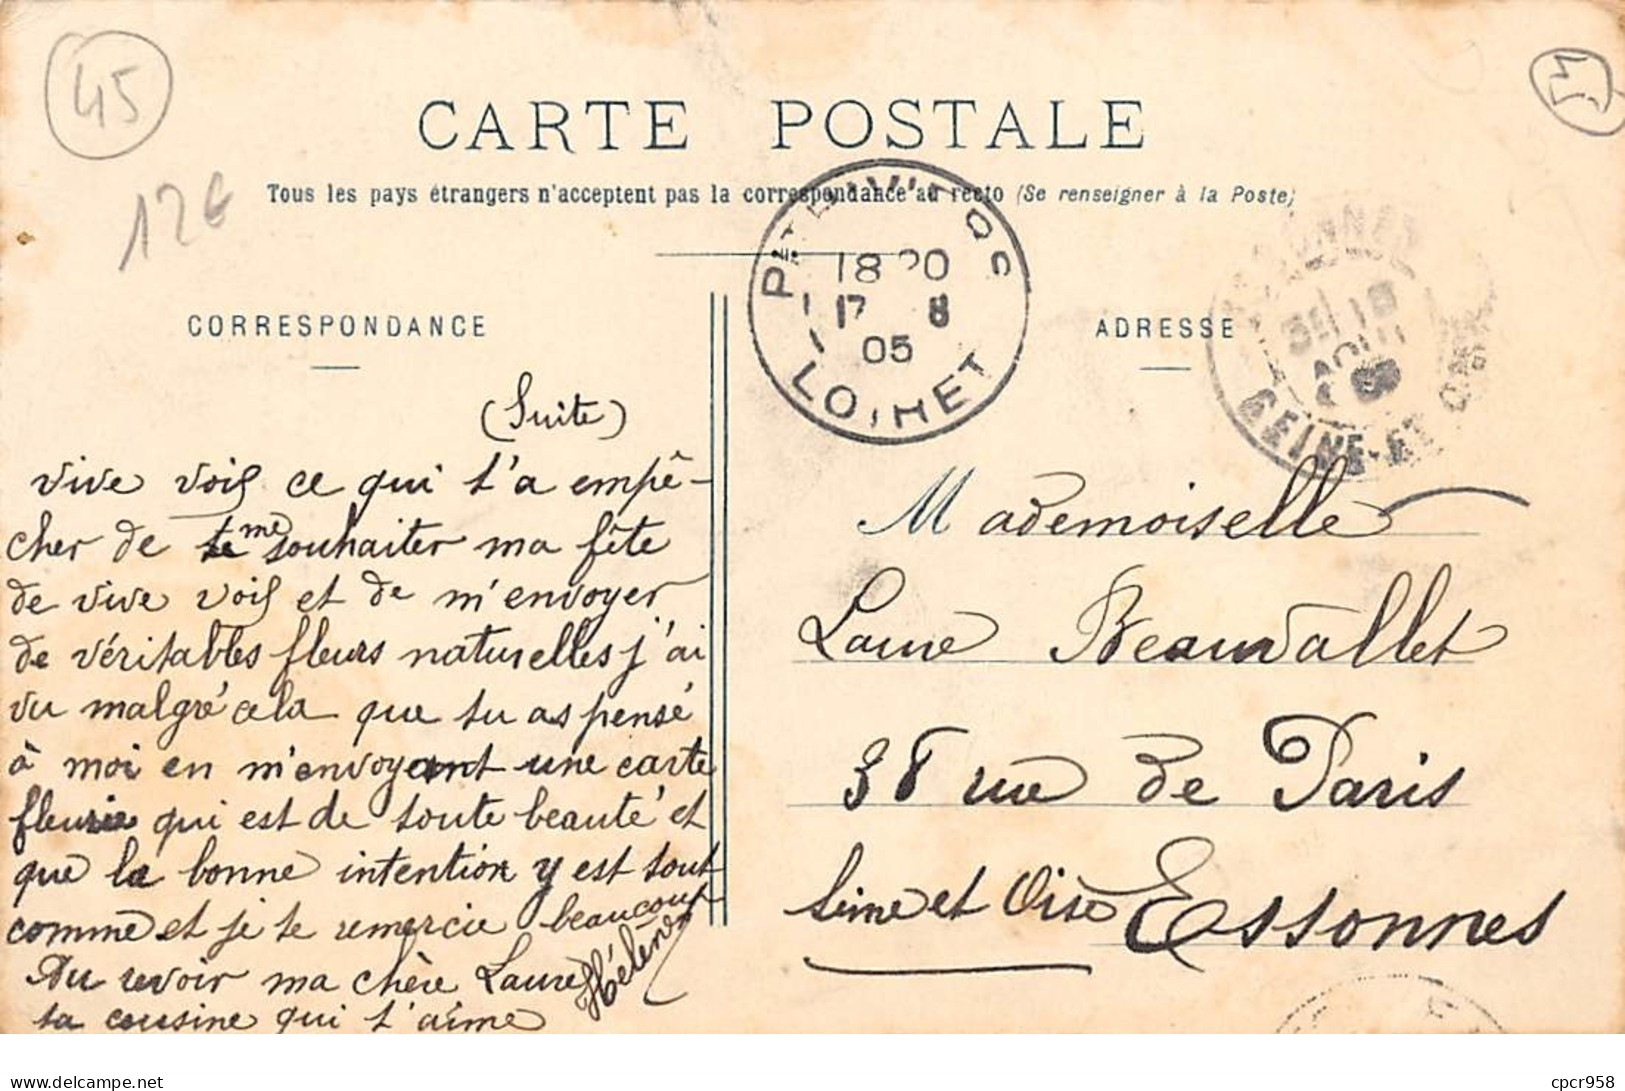 45
12€
CARTE POSTALE
Tous les pays étrangers n'acceptent pas la correspondance au recto (Se renseigner à la Poste)
18 20
17 8
05
LOIRET
18
AOUT
SEINE-ET-OISE
CORRESPONDANCE
ADRESSE
(Suite)
vive voix ce qui t'a empê-
cher de me souhaiter ma fête
de vive voix et de m'envoyer
de véritables fleurs naturelles j'ai
vu malgré cela que tu as pensé
à moi en m'envoyant une carte
fleurie qui est de toute beauté et
que la bonne intention y est tout
comme et je te remercie beaucoup
Au revoir ma chère Laure
ta cousine qui t'aime
Hélène
Mademoiselle
Laure Beauvallet
38 rue de Paris
Seine et Oise Essonnes
delcampe.net
cpcr958